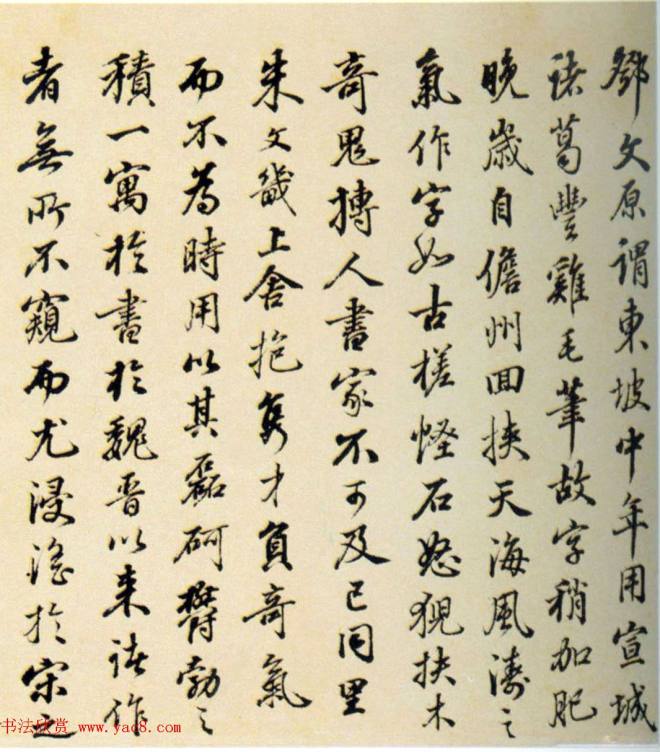 鄧文原謂東坡中年用宣城
諸葛豐雞毛筆故字稍加肥
晚歲自儋州回挾天海風濤之
氣作字如古槎怪石怒猊扶木
奇鬼搏人書家不可及已同里
朱文畿上舍抱雋才負奇氣
而不為時用以其磊砢鬱勃之
積一寓於書於魏晉以來諸作
者無所不窺而尤浸淫於宋之
书法欣赏 www.yac8.com